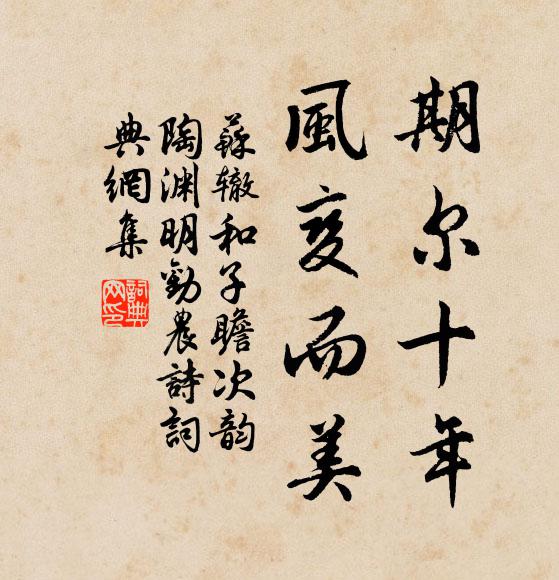 期尔十年
風变而美
蘇辙和子瞻次韵
陶渊明勸農詩詞
典網集
詞典網印